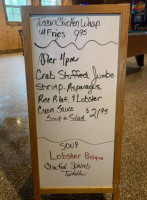 Tuscan Chicken Wrap
w/ Fries 9.95
After 4pm
Crab Stuffed Jumbo
Shrimp, Asparagus,
Rice Pilaf, & Lobster
Cream Sauce $21.95
Soup or Salad
SOUP
Lobster Bisque
Chicken
Tortellini